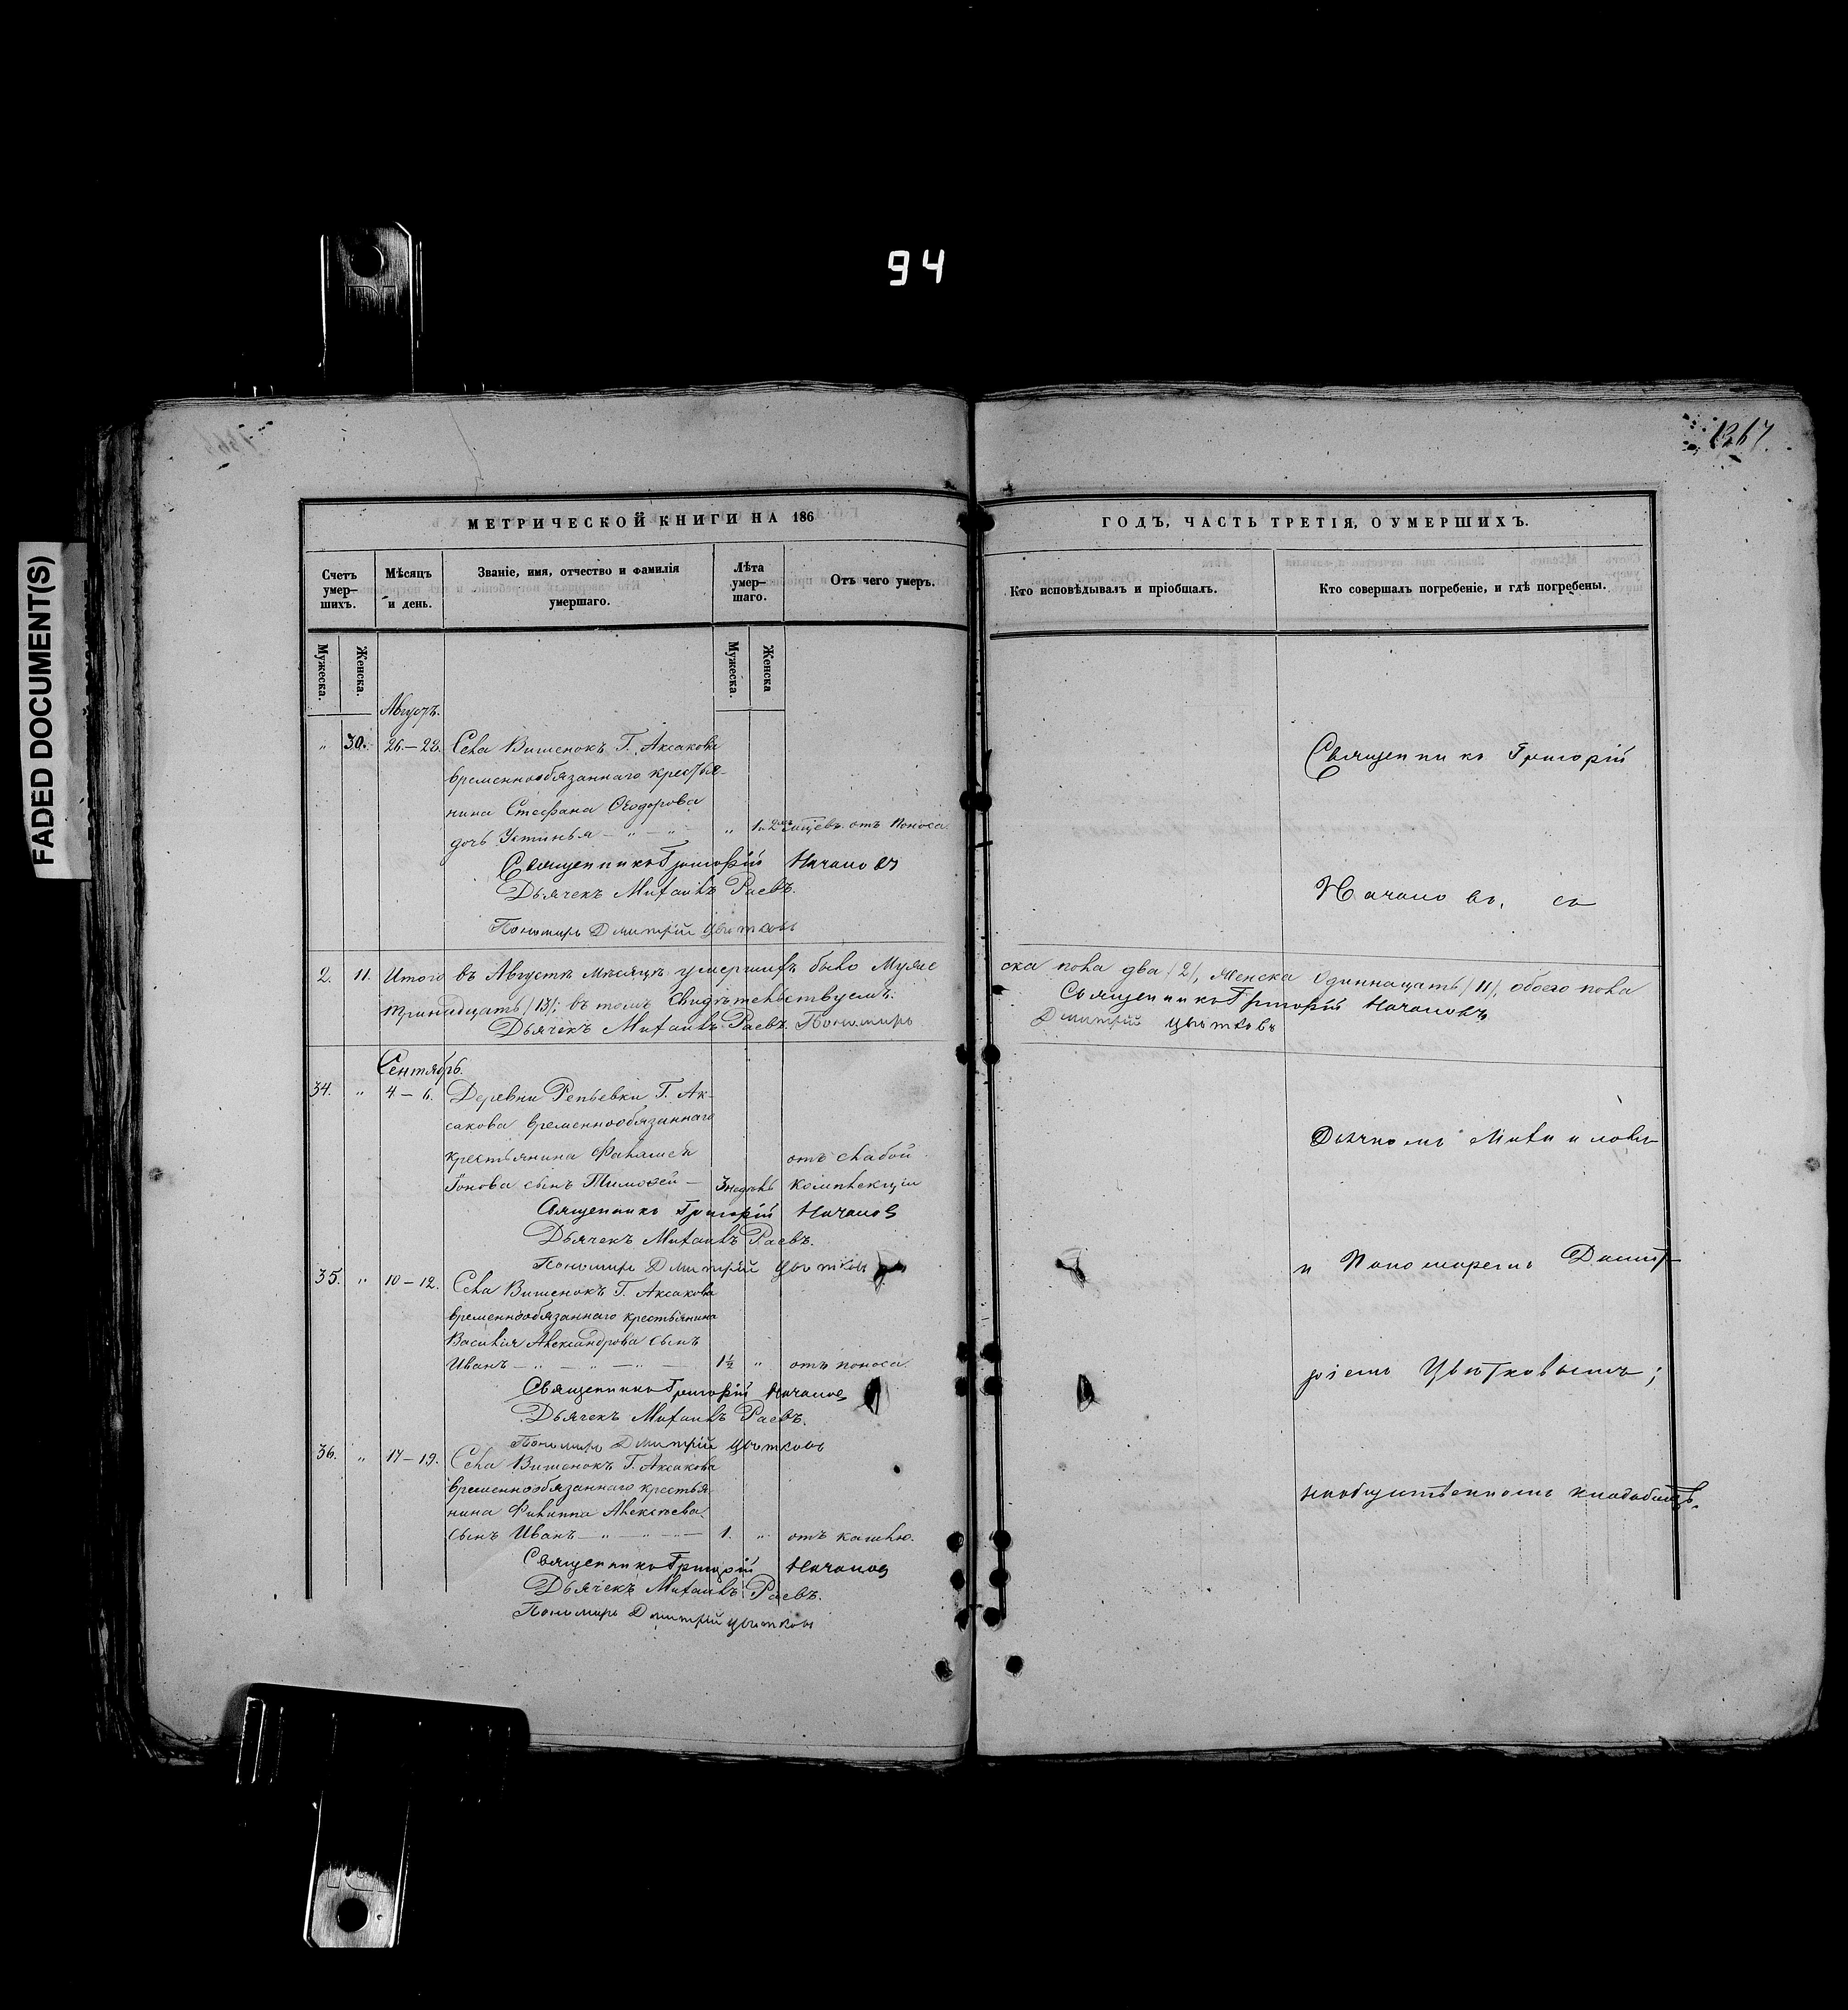 94
FADED DOCUMENT(S)
1267.
МЕТРИЧЕСКОЙ КНИГИ НА 186
Счетъ умер-шихъ.
Мѣсяцъ и день.
Званіе, имя, отчество и фамилія умершаго.
Лѣта умер-шаго.
Отъ чего умеръ.
Мужеска.
Женска.
Мужеска.
Женска
Августъ.
" 30. 26–28. Села Вишенокъ Г. Аксакова
временнообязаннаго крестья-
нина Стефана Ѳеодорова
дочь Устинья – " – " – " отъ поноса.
Священникъ Григорій Начановъ
Дьячекъ Михаилъ Раевъ.
Пономарь Дмитрій Цвѣтковъ
2. 11. Итого въ Августѣ мѣсяцѣ умершихъ было Муже
тринадцать /13/; въ томъ свидѣтельствуемъ:
Дьячекъ Михаилъ Раевъ. Пономарь
Сентябрь.
34. " 4–6. Деревни Репьевки Г. Ак-
сакова временнообязаннаго
крестьянина отъ слабой
Іонова сынъ Тимоѳей – 3 недѣль комплекціи
Священникъ Григорій Начановъ
Дьячекъ Михаилъ Раевъ.
Пономарь Дмитрій Цвѣтковъ
35. " 10–12. Села Вишенокъ Г. Аксакова
временнообязаннаго крестьянина
Василія Александрова сынъ
Иванъ – " – " – " – 1½ " отъ поноса.
Священникъ Григорій Начановъ
Дьячекъ Михаилъ Раевъ.
Пономарь Дмитрій Цвѣтковъ
36. " 17–19. Села Вишенокъ Г. Аксакова
временнообязаннаго крестья-
нина Филиппа Алексѣева
сынъ Иванъ – " – " – " – 1. " отъ кашлю.
Священникъ Григорій Начановъ
Дьячекъ Михаилъ Раевъ.
Пономарь Дмитрій Цвѣтковъ
ГОДЪ, ЧАСТЬ ТРЕТІЯ, О УМЕРШИХЪ.
Кто исповѣдывалъ и пріобщалъ.
Кто совершалъ погребеніе, и гдѣ погребены.
Священникъ Григорій
Начановъ, съ
ска пола два /2/, женска одиннацать /11/, обоего пола
Священникъ Григорій Начановъ
Дмитрій Цвѣтковъ
Дьячкомъ
и Пономаремъ Дмит-
ріемъ Цвѣтковымъ;
наобщественномъ кладбищѣ.